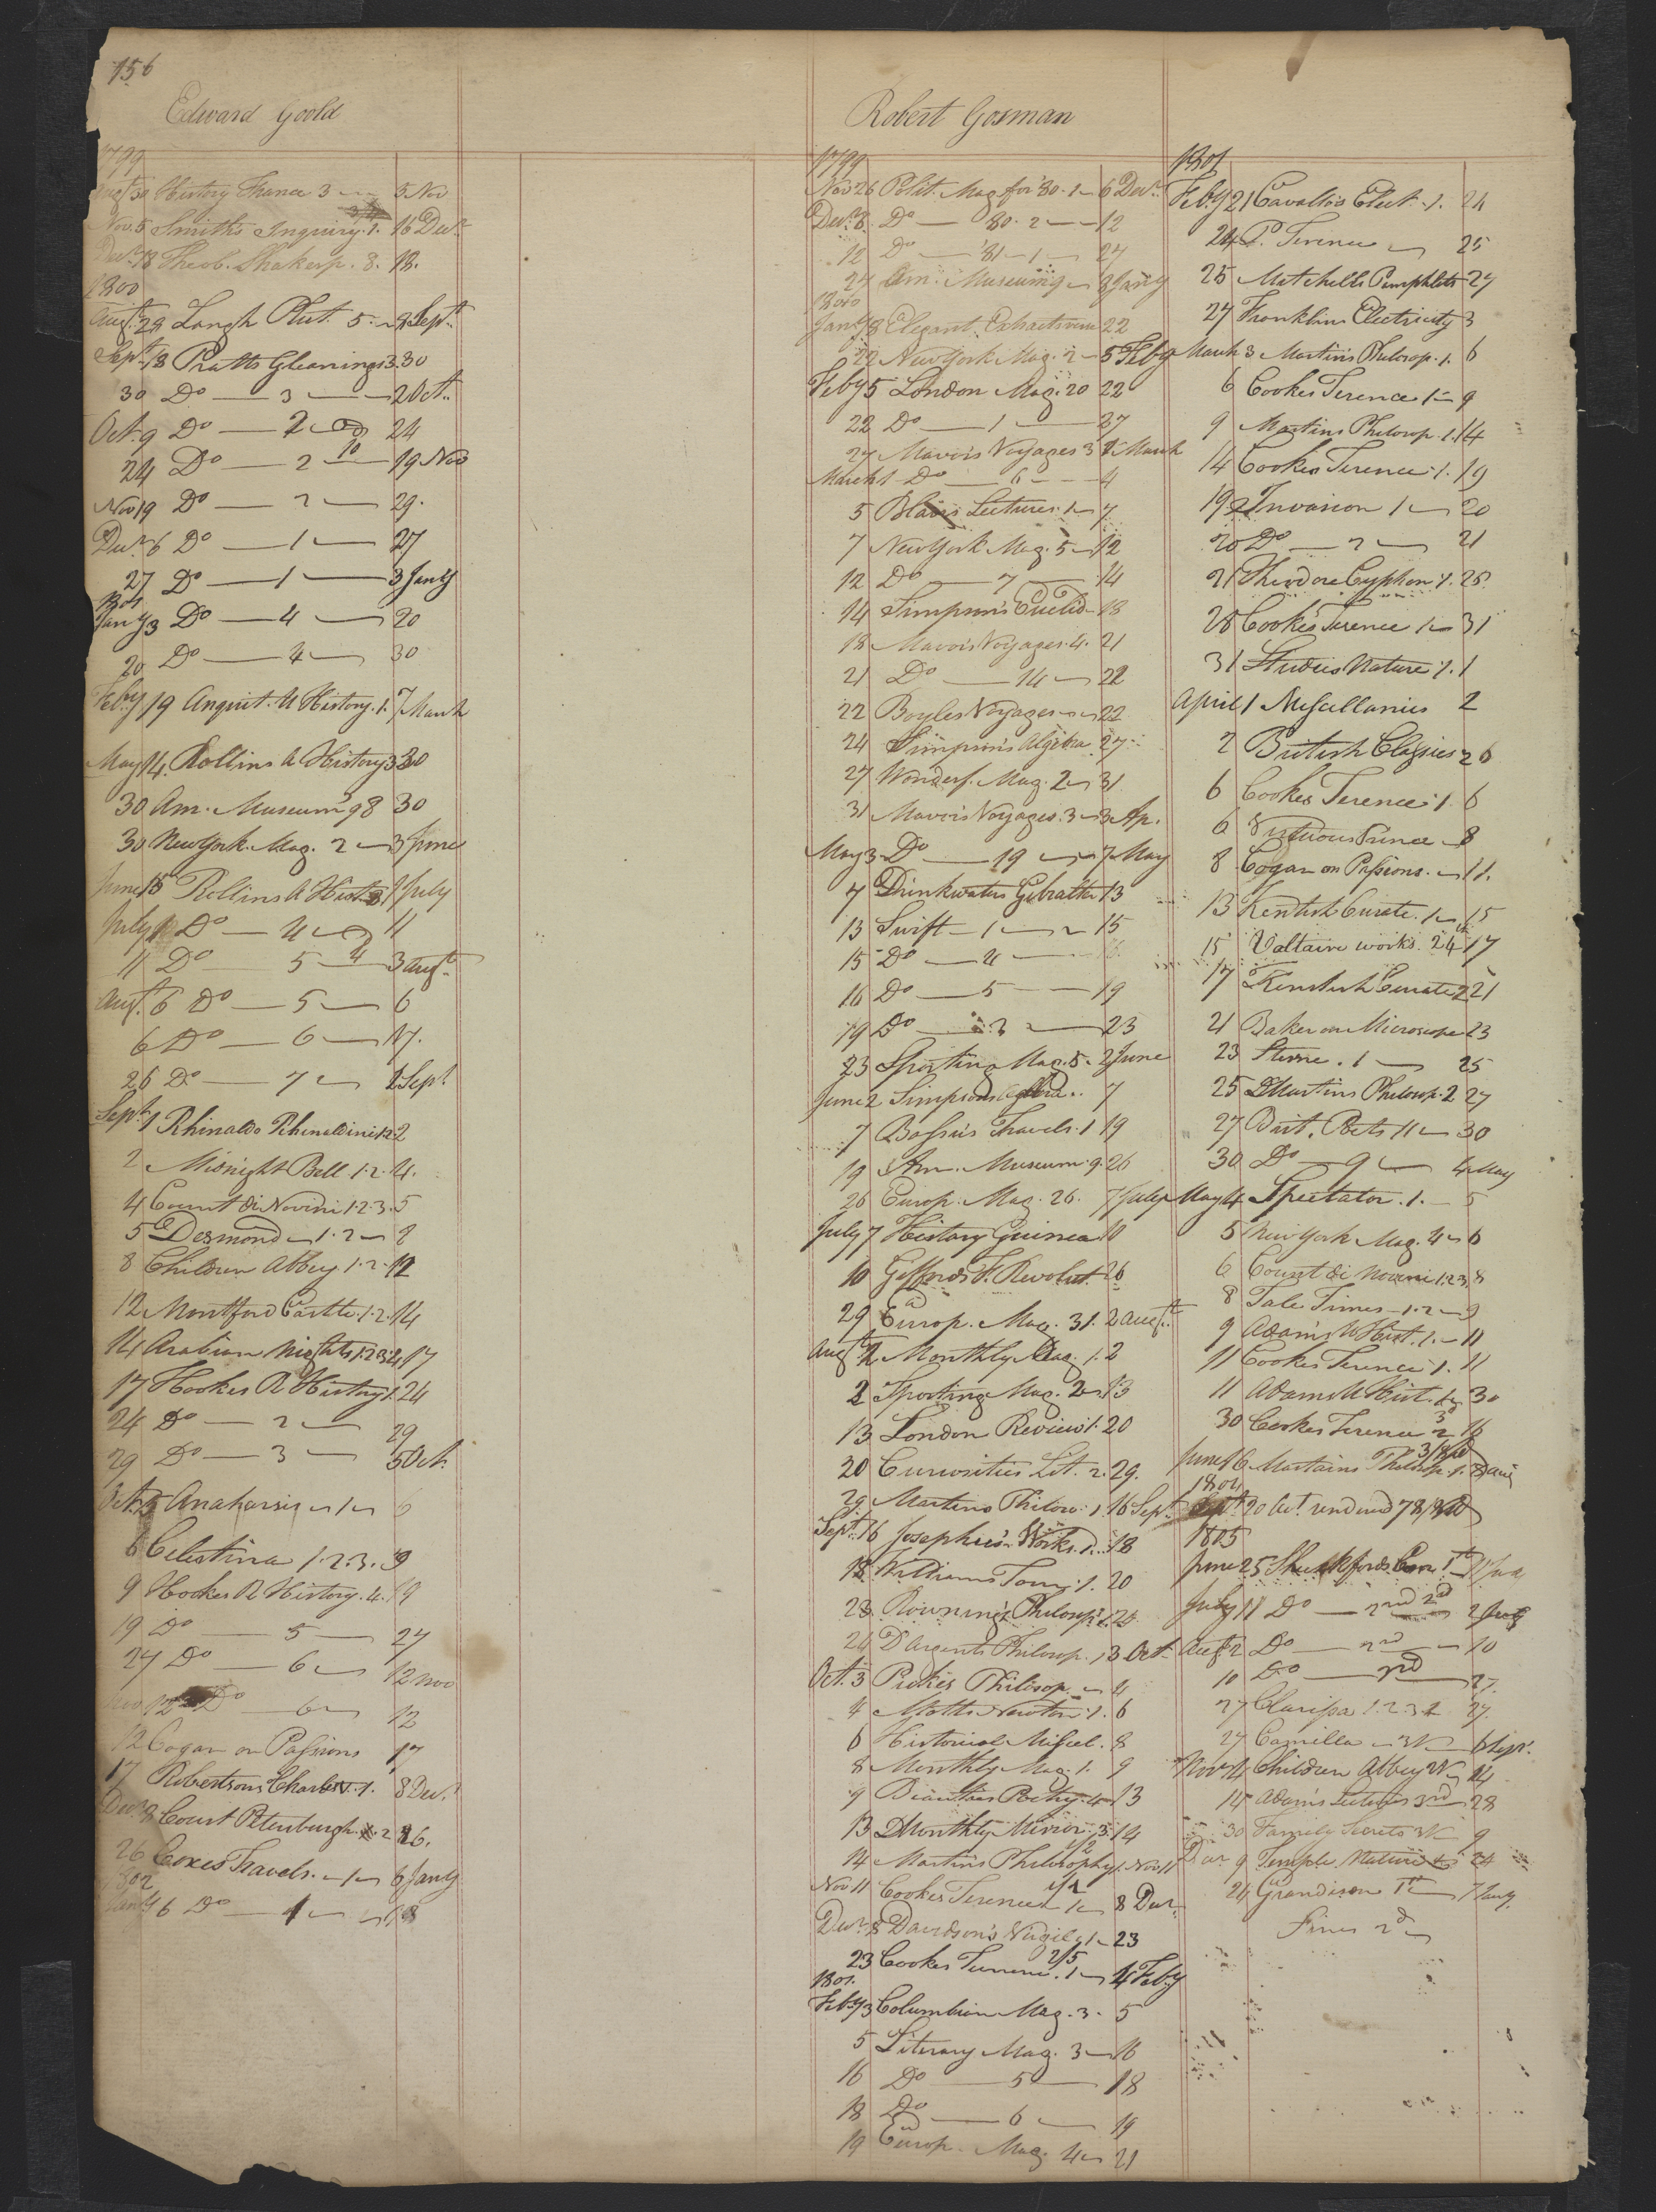 156
Edward Goold
1799
Augt 30 History France 3 — 5 Nov
Nov. 5 Smith's Inquiry. 1. 16 Decr
Decr 18 Theob. Shakesp. 8. 18.
1800
Augt. 28 Langh Plut. 5. — 8 Sept.
Sept. 18 Pratts Gleanings 3. 30
30 Do — 3 — 2 Oct.
Oct. 9 Do — 2 — 24
24 Do — 2 — 19 Nov
Nov 19 Do — 2 — 29.
Decr 6 Do — 1 — 27
27 Do — 1 — 3 Jany
1801
Jany 3 Do — 4 — 20
20 Do — 4 — 30
Feby 19 Anquit. U History. 1. 7 March
May 14. Rollins A History 3 30
30 Am. Museum 98 30
30 New York Mag. 2 — 3 June
June 15 Rollins A Hist. 3 1 July
July 1 Do — 4 — 11
11 Do — 5 — 3 Augt.
Augt. 6 Do — 5 — 6
6 Do — 6 — 17.
26 Do — 7 — 1 Sept
Sept. 1 Rhinaldo Rhinaldini 1.2. 2
2 Midnight Bell 1.2. 4.
4 Count di Novini 1.2.3. 5
5 Desmond — 1.2 — 8
8 Children Abbey 1.2. 12
12 Montford Castle. 1.2. 14
14 Arabian Nights 1.2.3.4 17
17 Hookes R History 1. 24
24 Do — 2 — 29
29 Do — 3 — 5 Oct.
Oct. 5 Anaharsis — 1 — 6
6 Celestina 1.2.3. 9
9 Hookes R History. 4. 19
19 Do — 5 — 27
27 Do — 6 — 12 Nov
Nov 12 Do — 6 — 12
12 Cogan on Passions 17
17 Robertsons Charles V. 1. 8 Decr.
Decr 8 Court Petersburgh. 2 26.
26 Coxes Travels. — 1 — 6 Jany
1802
Jany 6 Do — 1 — 18
Robert Gosman
1799
Nov 26 Polit. Mag for '80. 1 — 6 Decr.
Decr 8. Do — 80. 2 — 12
12 Do — '81 — 1 — 27
27 Am. Museum 9 — 8 Jany
1800
Jany 8 Elegant Extracts verse 22
22 New York Mag. 2 — 5 Feby
Feby 5 London Mag. 20 22
22 Do — 1 — 27
27 Mavors Voyages 3 1 March
March 1 Do — 6 — 4
5 Blairs Lectures. 1 — 7
7 New York Mag. 5 — 12
12 Do — 7 — 14
14 Simpson's Euclid — 18
18 Mavors Voyages. 4. 21
21 Do — 14 — 22
22 Boyles Voyages — 22
24 Simpson's Algebra 27
27 Wonderf. Mag. 2 — 31
31 Mavors Voyages. 3 — 3 Ap.
May 3 Do — 19 — 7 May
7 Drinkwaters Gibralter 13
13 Swift — 1 — 15
15 Do — 4 — 16
16 Do — 5 — 19
19 Do — 3 — 23
23 Sporting Mag. 5. 2 June
June 2 Simpsons Algebra.. 7
7 Bossu's Travels. 1 19
19 Am. Museum. 9. 26
26 Europ. Mag. 26. 7 July
July 7 History Guinea 10
10 Giffords F. Revolut. 26
29 Europ. Mag. 31. 2 Augt.
Augt 2 Monthly Mag. 1. 2
2 Sporting Mag. 2 — 13
13 London Review 1. 20
20 Curiosities Lit. 2. 29.
29 Martins Philoso. 1. 16 Sept
Sept. 16 Josephus's Works. 1. 18
18 Williams Tour. 1. 20
23 Rowning's Philosp. 1. 24
24 D'Argents Philosop. 1 3 Oct.
Oct. 3 Pickes Philosop. — 4
4 Motts Newton. 1. 6
6 Historical Miscel. 8
8 Monthly Mag. 1. 9
9 Beauties Poetry. 4 13
13 Monthly Mirror. 3. 14
14 Martins Philosophy 1 Nov 11
Nov 11 Cookes Terence 1 — 8 Decr.
Decr 8 Davidson's Virgil. 1 — 23
23 Cookes Terence. 1 — 4 Feby
1801.
Feby 3 Columbian Mag. 3. 5
5 Literary Mag. 3 — 16
16 Do — 5 — 18
18 Do — 6 — 19
19 Europ. Mag. 4 — 21
1801
Feby 21 Cavallo's Elect. 1. 24
24 P. Terence — 25
25 Mitchells Pamphlets 27
27 Franklins Electricity 3
March 3 Martins Philosop. 1. 6
6 Cookes Terence 1 — 9
9 Martins Philosop. 1. 14
14 Cookes Terence. 1. 19
19 Invasion 1 — 20
20 Do — 2 — 21
21 Theodore Cyphon 1. 28
28 Cookes Terence 1 — 31
31 Studies Nature 1. 1
April 1 Miscellanies 2
2 British Classics 2 6
6 Cookes Terence. 1. 6
6 Virtuous Prince — 8
8 Cogan on Passions. — 11.
13 Kentish Curate. 1 — 15
15 Voltaire works. 24 17
17 Kentish Curate 2 21
21 Baker on Microscope 23
23 Sterne. 1 — 25
25 Martins Philosop. 2 27
27 Brit. Poets 11 — 30
30 Do — 9 — 4 May
May 4 Spectator. 1. — 5
5 New York Mag. 4 — 6
6 Count di Novini 1.2.3 8
8 Tale Times — 1.2 — 9
9 Adam's U Hist. 1. — 11
11 Cookes Terence. 1. 11
11 Adams U Hist. 30
30 Cookes Terence 2 16
June 16 Martains Philosop. 1.
1804
Sept. 20 Act. rendered 78/
1805
June 25 Shuckfords Con 1st
July 11 Do — 2nd
Augt. 2 Do — 2nd — 10
10 Do — 3rd 27.
27 Clarissa 1.2.3.4 27.
27 Camilla — 6 Sepr.
Novr 4 Children Abbey 14
14 Adams Lectures 3rd 28
30 Family Secrets 9
Decr 9 Temple Nature 24
24 Grandison 1st 7 Jany
Fines